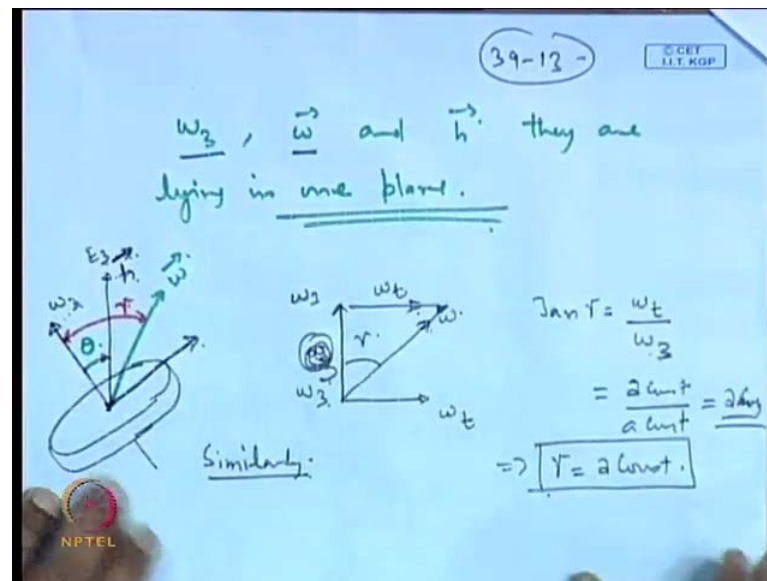 39-13-
© CET
I.I.T. KGP
ω3, ω and h they are
lying in one plane.
E3
h
ω
ω3
γ
θ
ω3
ωt
ω
γ
ω3
ωt
Tan γ = ωt / ω3
= a const / a const =
=> γ = a const.
Similarly.
NPTEL